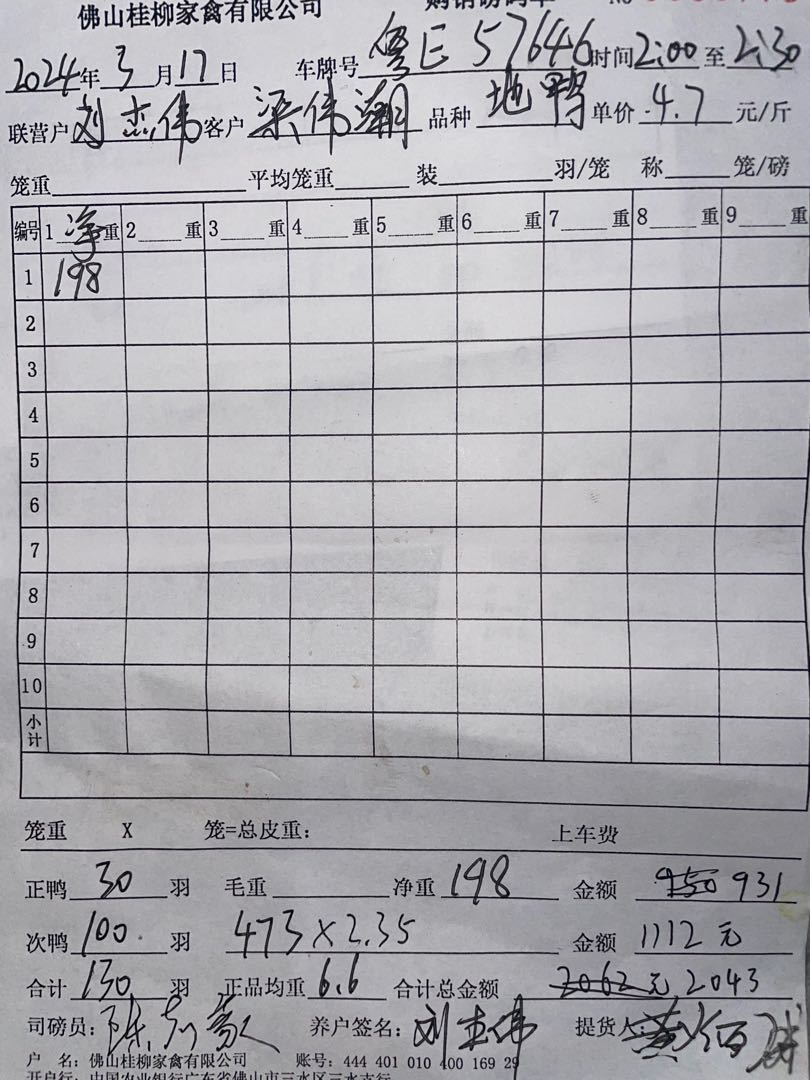 佛山桂柳家禽有限公司 购销磅码单 No
2024年3月17日 车牌号 粤E 57646 时间2:00至2:30
联营户 刘杰伟 客户 梁伟潮 品种 地鸭 单价 4.7 元/斤
笼重 平均笼重 装 羽/笼 称 笼/磅
编号 1 净 重 2 重 3 重 4 重 5 重 6 重 7 重 8 重 9 重
1 198
2
3
4
5
6
7
8
9
10
小计
笼重 X 笼=总皮重: 上车费
正鸭 30 羽 毛重 净重 198 金额 950 931
次鸭 100 羽 473×2.35 金额 1112元
合计 130 羽 正品均重 6.6 合计总金额 2062元 2043
司磅员: 养户签名: 刘杰伟 提货人
户 名: 佛山桂柳家禽有限公司 账号: 444 401 010 400 169 29
开户行: 中国农业银行广东省佛山市三水区三水支行